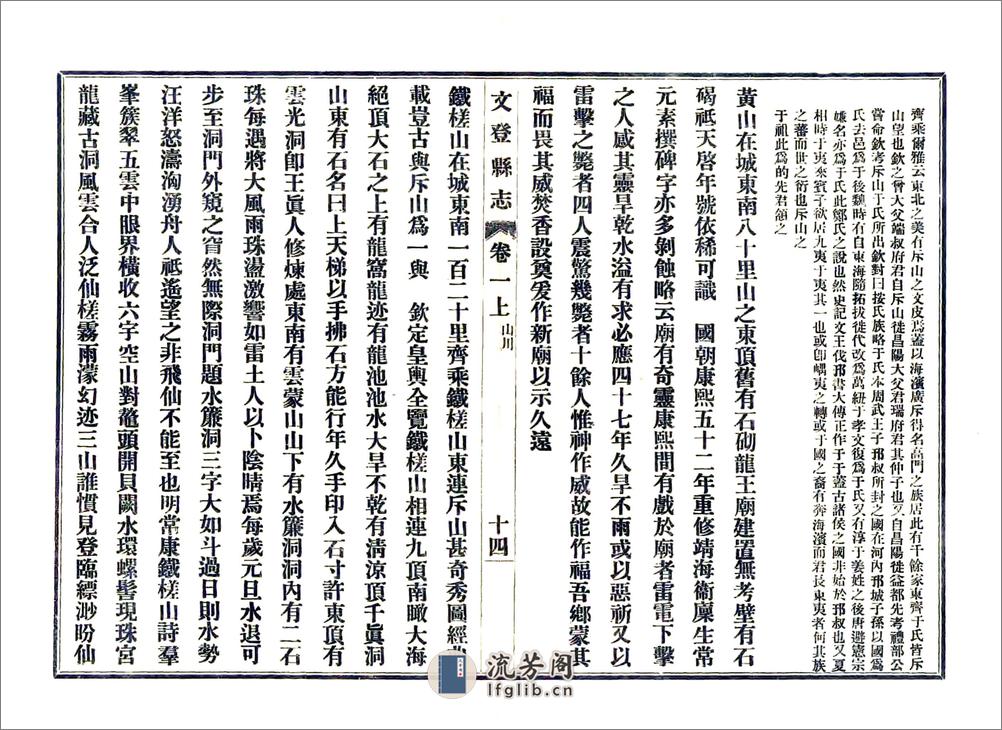 齊乘爾雅云東北之美有斥山之文皮焉蓋以海濱廣斥得名高門之族居此有千餘家東齊于氏皆斥
山望也欽之曾大父端叔府君自斥山徙昌陽大父君瑞府君其仲子也又自昌陽徙益都先考禮部公
嘗命欽考斥山于氏所出欽對曰按氏族略于氏本周武王子邘叔所封之國在河內邘城子孫以國爲
氏去邑爲于後魏時有自東海隨拓拔徙代改爲萬紐于孝文復爲于氏又有淳于姜姓之後唐避憲宗
嫌名亦爲于氏此鄒氏之說也然史記文王伐邘書大傳正作于于蓋古諸侯之國非始於邘叔也又夏
相時于夷來賓子欲居九夷于夷其一也或卽嵎夷之轉或于國之裔有奔海濱而君長東夷者何其族
之蕃而世之衍也斥山之
于祖此爲的先君頷之
黃山在城東南八十里山之東頂舊有石砌龍王廟建置無考壁有石
碣祗天啓年號依稀可識　國朝康熙五十二年重修靖海衞廩生常
元素撰碑字亦多剝蝕略云廟有奇靈康熙間有戲於廟者雷電下擊
之人感其靈旱乾水溢有求必應四十七年久旱不雨或以惡祈又以
雷擊之斃者四人震驚幾斃者十餘人惟神作威故能作福吾鄉蒙其
福而畏其威焚香設奠爰作新廟以示久遠
文登縣志　卷一上　山川　十四
鐵槎山在城東南一百二十里齊乘鐵槎山東連斥山甚奇秀圖經
載豈古與斥山爲一與　欽定皇輿全覽鐵槎山相連九頂南瞰大海
絕頂大石之上有龍窩龍迹有龍池池水大旱不乾有淸涼頂千眞洞
山東有石名曰上天梯以手拂石方能行年久手印入石寸許東頂有
雲光洞卽王眞人修煉處東南有雲蒙山山下有水簾洞洞內有二石
珠每遇將大風雨珠盪激響如雷土人以卜陰晴焉每歲元旦水退可
步至洞門外窺之窅然無際洞門題水簾洞三字大如斗過日則水勢
汪洋怒濤洶湧舟人祗遙望之非飛仙不能至也明常康鐵槎山詩羣
峯簇翠五雲中眼界橫收六字空山對鼇頭開貝闕水環螺髻現珠宮
龍藏古洞風雲合人泛仙槎霧雨濛幻迹三山誰慣見登臨縹渺盼仙
流芳阁
lfglib.cn